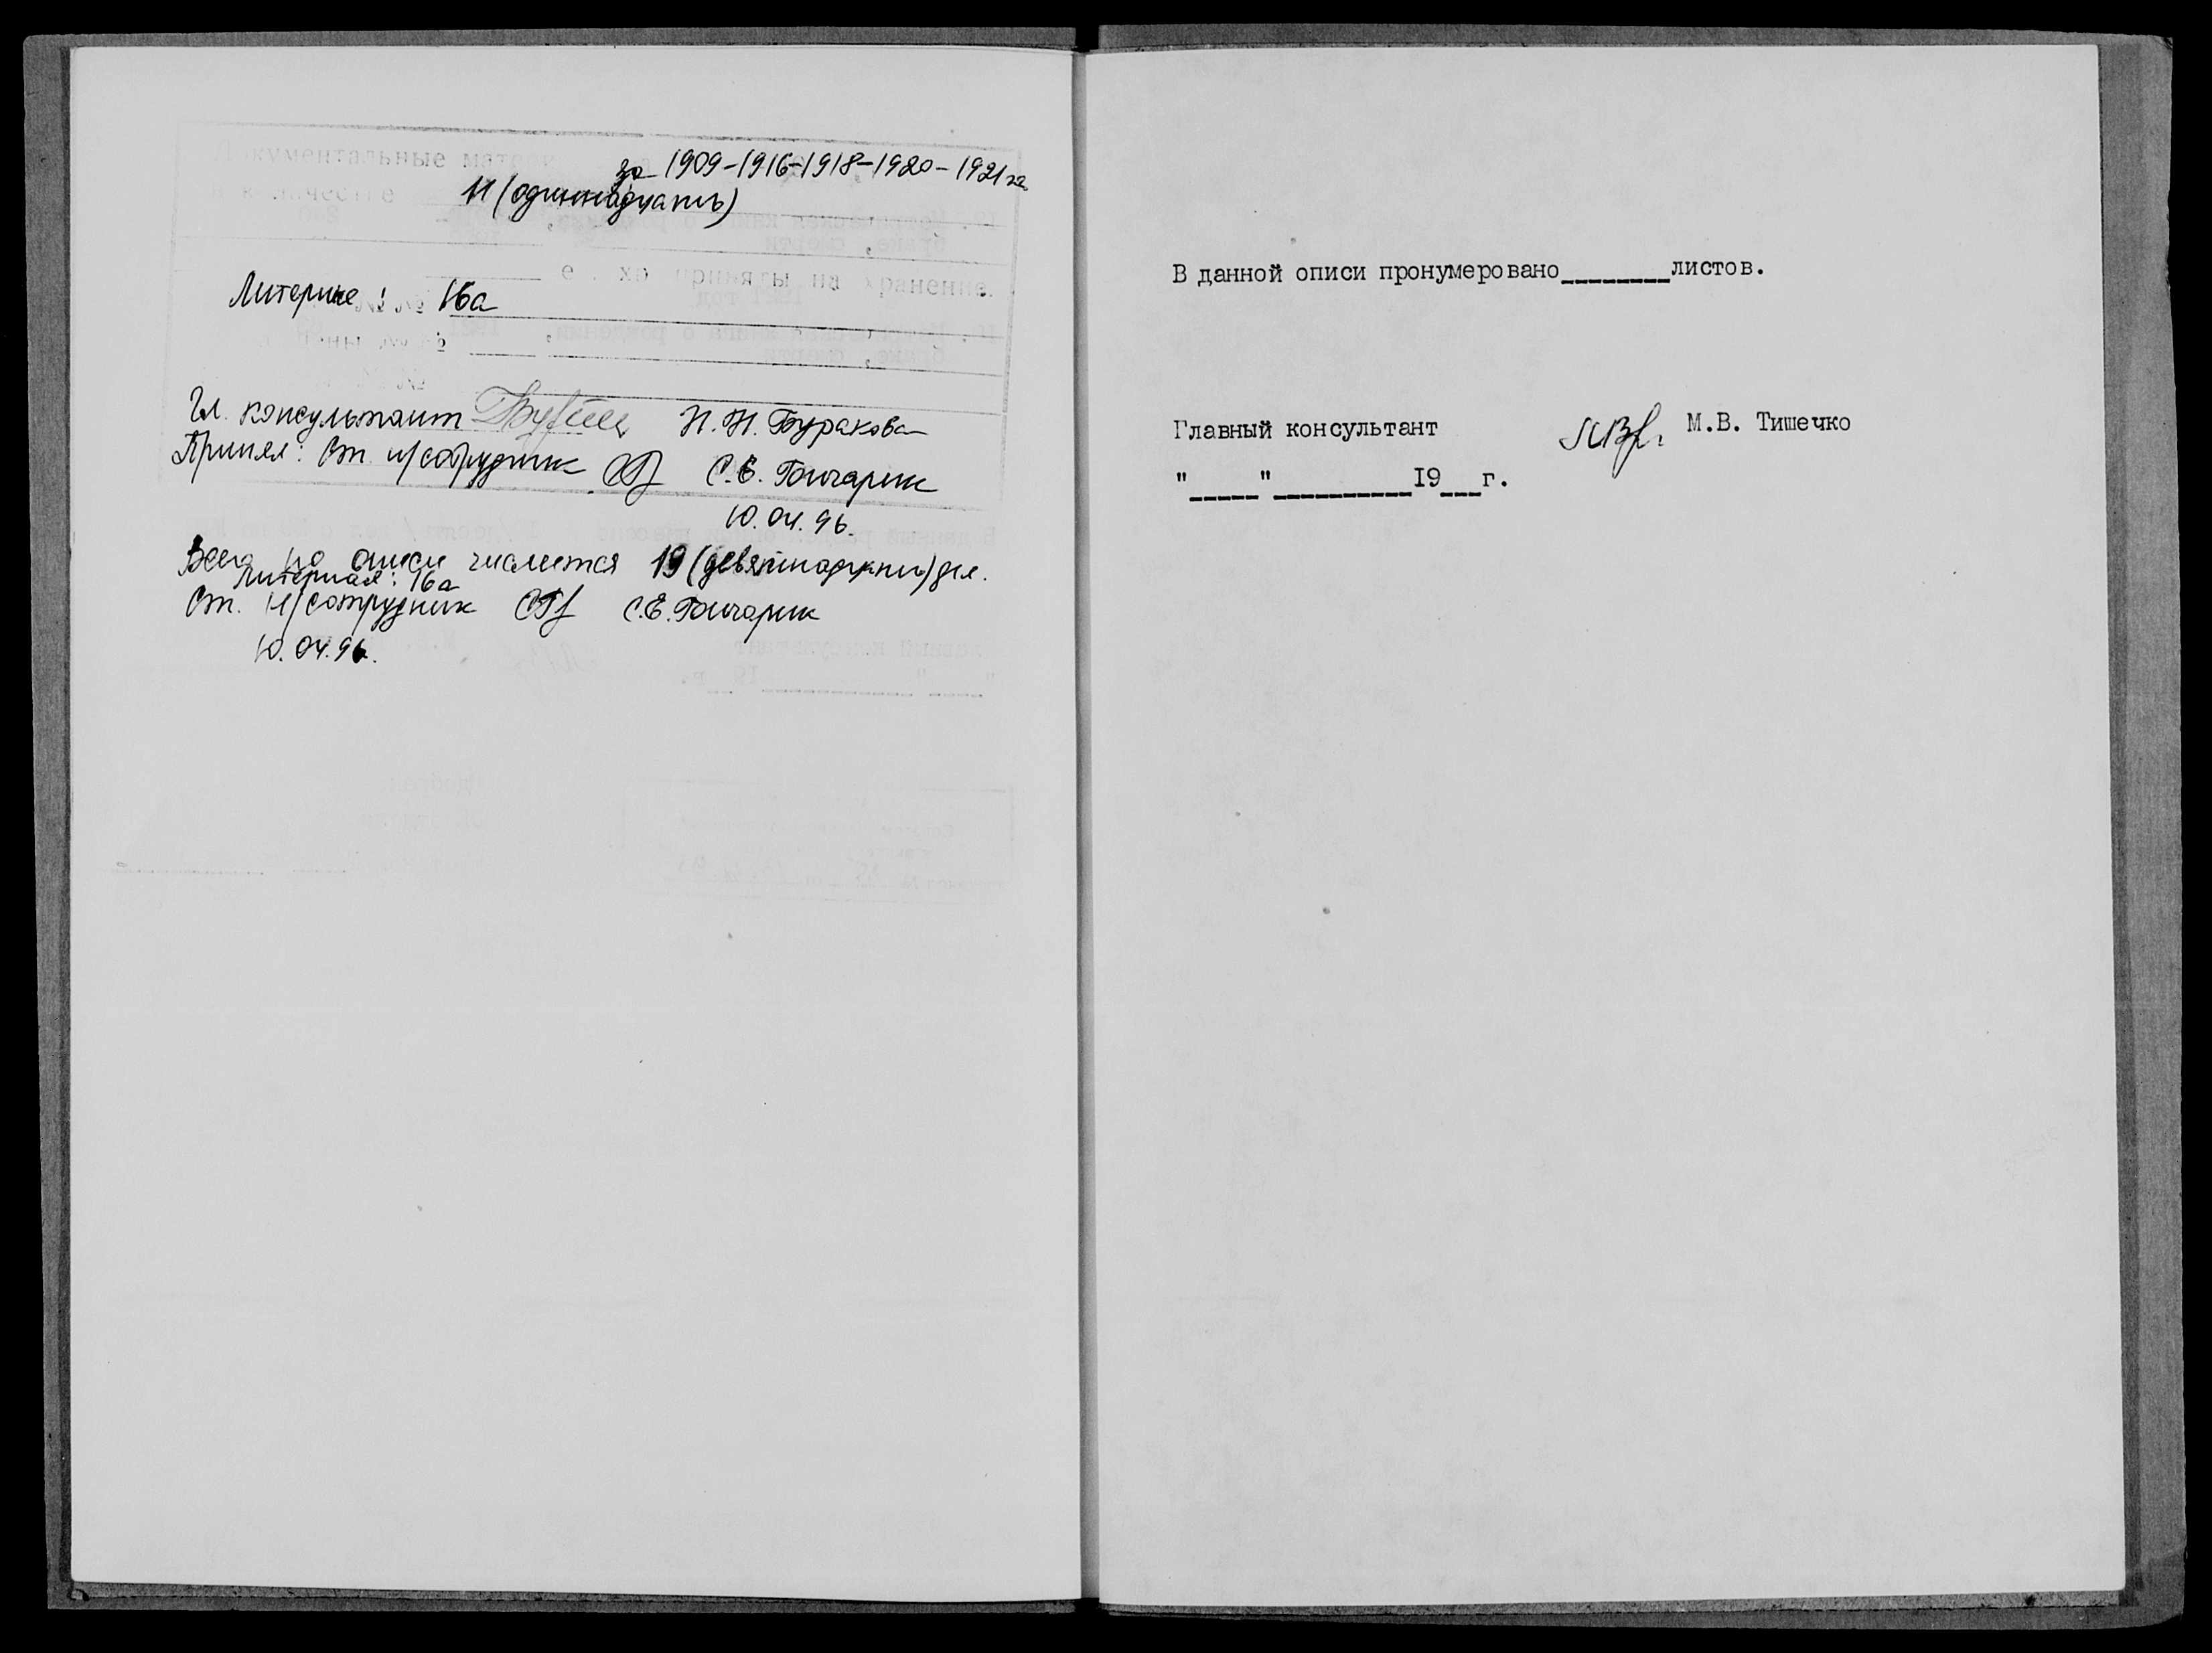 Документальные матер за 1909-1916-1918-1920-1921 гг.
количестве 11 (одиннадцать)
ед. хр. приняты на хранение.
Литерные: №№ 16а
Гл. консультант Н.Н. Буракова
Принял: Ст. н/сотрудник С.Е. Гончарик
10.04.96.
Всего по описи числится 19 (девятнадцать) дел.
Литерная: 16а
Ст. н/сотрудник С.Е. Гончарик
10.04.96.
В данной описи пронумеровано________листов.
Главный консультант М.В. Тишечко
"_____"__________19___г.